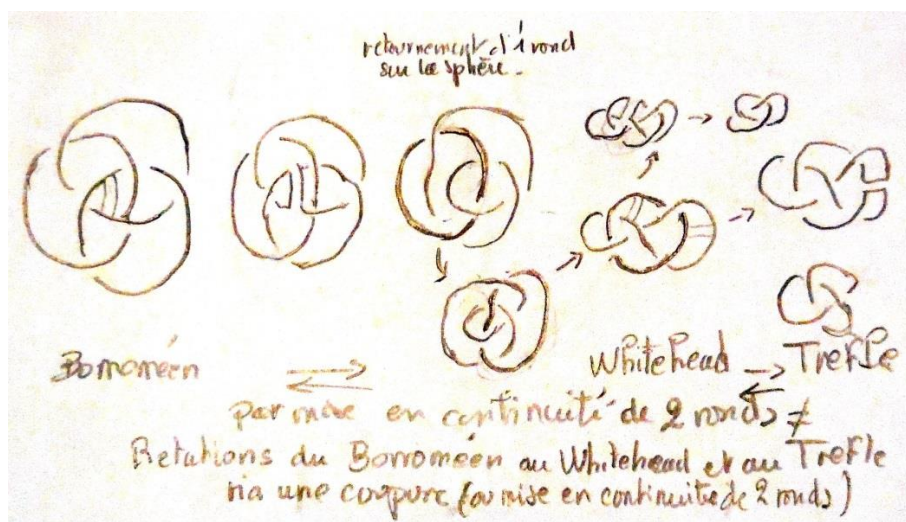 retournement d'1 rond
sur la sphère.
Borroméen
Whitehead → Trefle
par mise en continuité de 2 ronds ≠
Relations du Borroméen au Whitehead et au Trefle
via une coupure (ou mise en continuité de 2 ronds)